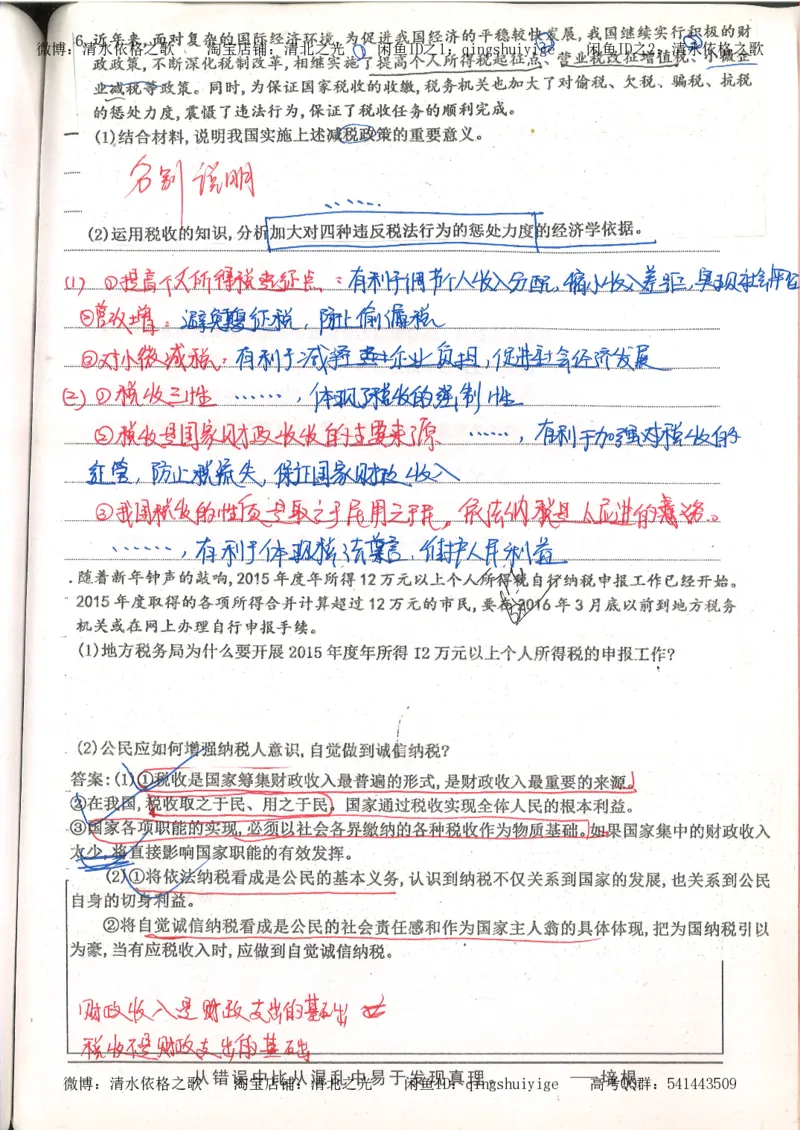 6.近年来,面对复杂的国际经济环境,为促进我国经济的平稳较快发展,我国继续实行积极的财
微博:清水依格之歌 淘宝店铺:清北之光 闲鱼ID之1:qingshuiyige 闲鱼ID之2:清水依格之歌
政政策,不断深化税制改革,相继实施了提高个人所得税起征点、营业税改征增值税、小微企
业减税等政策。同时,为保证国家税收的收缴,税务机关也加大了对偷税、欠税、骗税、抗税
的惩处力度,震慑了违法行为,保证了税收任务的顺利完成。
(1)结合材料,说明我国实施上述减税政策的重要意义。
分别说明
(2)运用税收的知识,分析加大对四种违反税法行为的惩处力度的经济学依据。
(1) ①提高个人所得税起征点:有利于调节个人收入分配,缩小收入差距,实现社会公平
②营改增:避免重复征税,防止偷漏税
③对小微减税:有利于减轻企业负担,促进社会经济发展
(2) ①税收三性 ……,体现了税收的强制性
②税收是国家财政收入的主要来源 ……,有利于加强对税收的
征管,防止税流失,保证国家财政收入
③我国税收的性质是取之于民用之于民。依法纳税是人民的义务。
……,有利于体现税法尊严,维护人民利益
.随着新年钟声的敲响,2015年度年所得12万元以上个人所得税自行纳税申报工作已经开始。
2015年度取得的各项所得合并计算超过12万元的市民,要在2016年3月底以前到地方税务
机关或在网上办理自行申报手续。
(1)地方税务局为什么要开展2015年度年所得12万元以上个人所得税的申报工作?
(2)公民应如何增强纳税人意识,自觉做到诚信纳税?
答案:(1)①税收是国家筹集财政收入最普遍的形式,是财政收入最重要的来源。
②在我国,税收取之于民、用之于民。国家通过税收实现全体人民的根本利益。
③国家各项职能的实现,必须以社会各界缴纳的各种税收作为物质基础。如果国家集中的财政收入
太少,将直接影响国家职能的有效发挥。
(2)①将依法纳税看成是公民的基本义务,认识到纳税不仅关系到国家的发展,也关系到公民
自身的切身利益。
②将自觉诚信纳税看成是公民的社会责任感和作为国家主人翁的具体体现,把为国纳税引以
为豪,当有应税收入时,应做到自觉诚信纳税。
财政收入是财政支出的基础
税收不是财政支出的基础
从错误中比从混乱中易于发现真理。 ——培根
微博:清水依格之歌 淘宝店铺:清北之光 闲鱼ID:qingshuiyige 高考QQ群:541443509